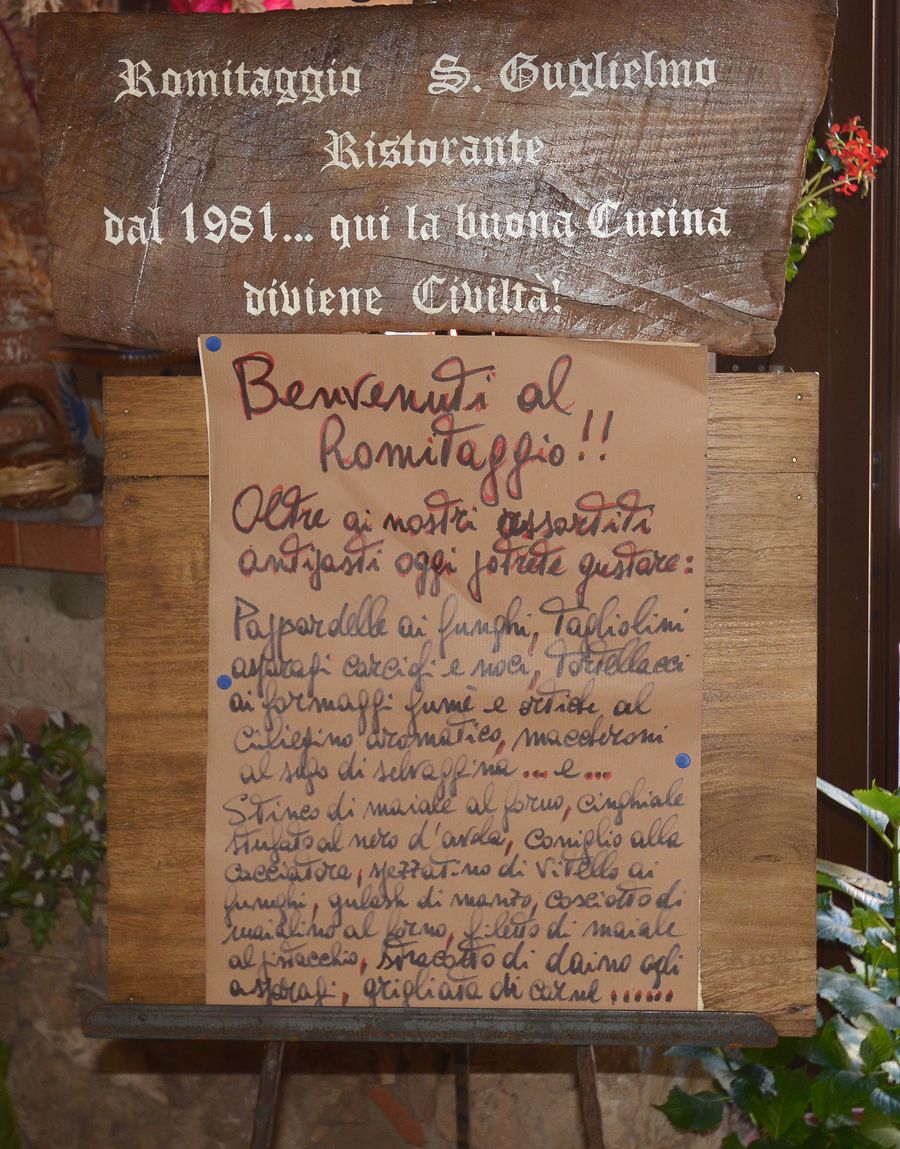 Romitaggio S. Guglielmo
Ristorante
dal 1981... qui la buona Cucina
diviene Civiltà!
Benvenuti al
Romitaggio!!
Oltre ai nostri assortiti
antipasti oggi potrete gustare:
Pappardelle ai funghi, Tagliolini
asparagi carciofi e noci, Tortellacci
ai formaggi fumè e ortiche al
Ciliegino aromatico, maccheroni
al sugo di selvaggina ... e ...
Stinco di maiale al forno, cinghiale
stufato al nero d'avola, coniglio alla
cacciatora, spezzatino di Vitello ai
funghi, gulash di manzo, cosciotto di
maialino al forno, filetto di maiale
al pistacchio, stracotto di daino agli
asparagi, grigliata di carne ......